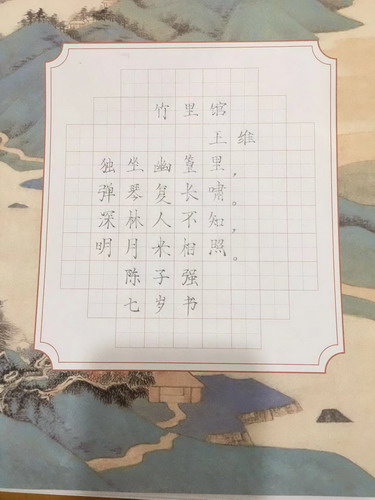 竹里馆
王维
独坐幽篁里，
弹琴复长啸。
深林人不知，
明月来相照。
陈子强
七岁书